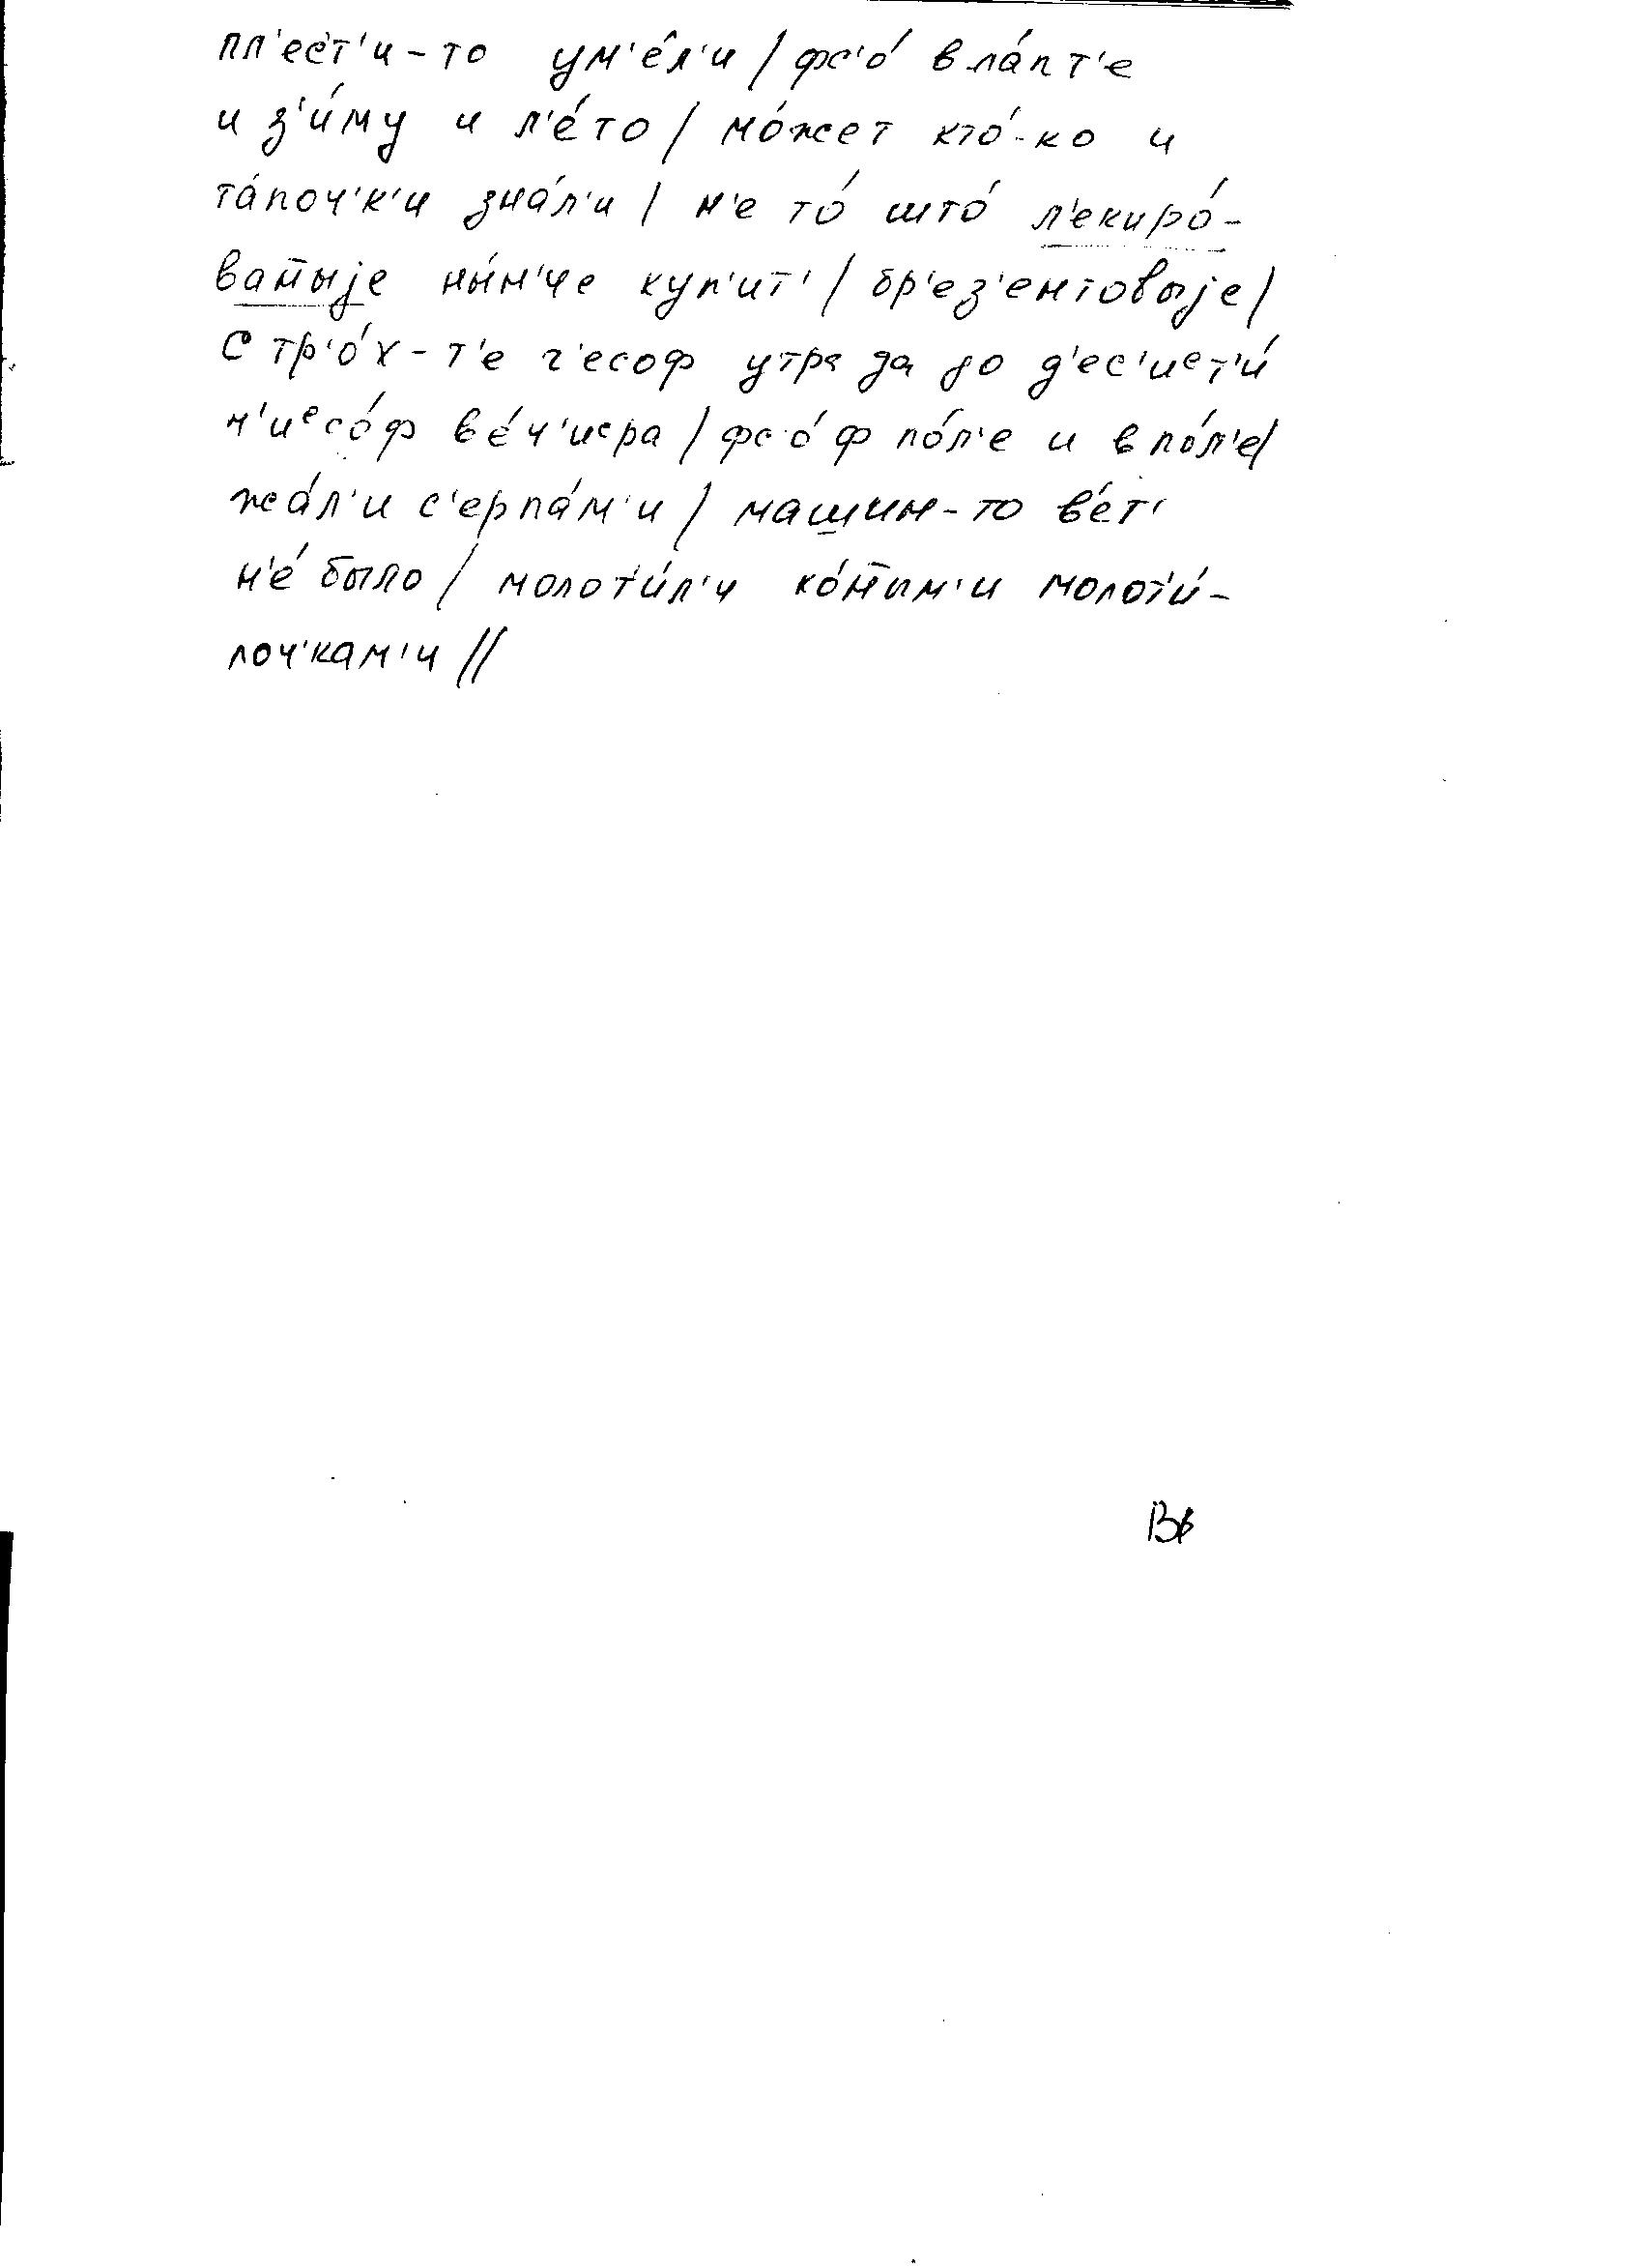 пл'ес'т'и-то ум'е́л'и / фс'о́ в ла́пт'е
и з'и́му и л'е́то / мо́жет кто́-ко и
та́поч'к'и зна́л'и / н'е то́ што́ л'екиро́-
ван̄ыjе ны́н'че куп'ит' / бр'ез'ентовыjе /
с тр'о́х-т'е ч'есоф утра да до д'ес'иᵉт'и́
ч'иᵉсо́ф ве́ч'иᵉра / фс'о́ ф по́л'е и в по́л'е /
жа́л'и с'ерпа́м'и / машин-то ве́т'
н'е́ было / молот'и́л'и ко́н̄ым'и молот'и́-
лоч'кам'и //